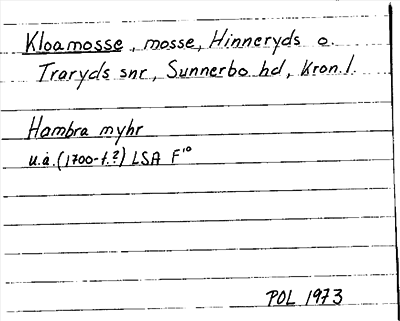 Kloamosse, mosse, Hinneryds o.
Traryds snr, Sunnerbo hd, Kron. l.
Hambra myhr
u.å. (1700-t.?) LSA F¹⁰
POL 1973